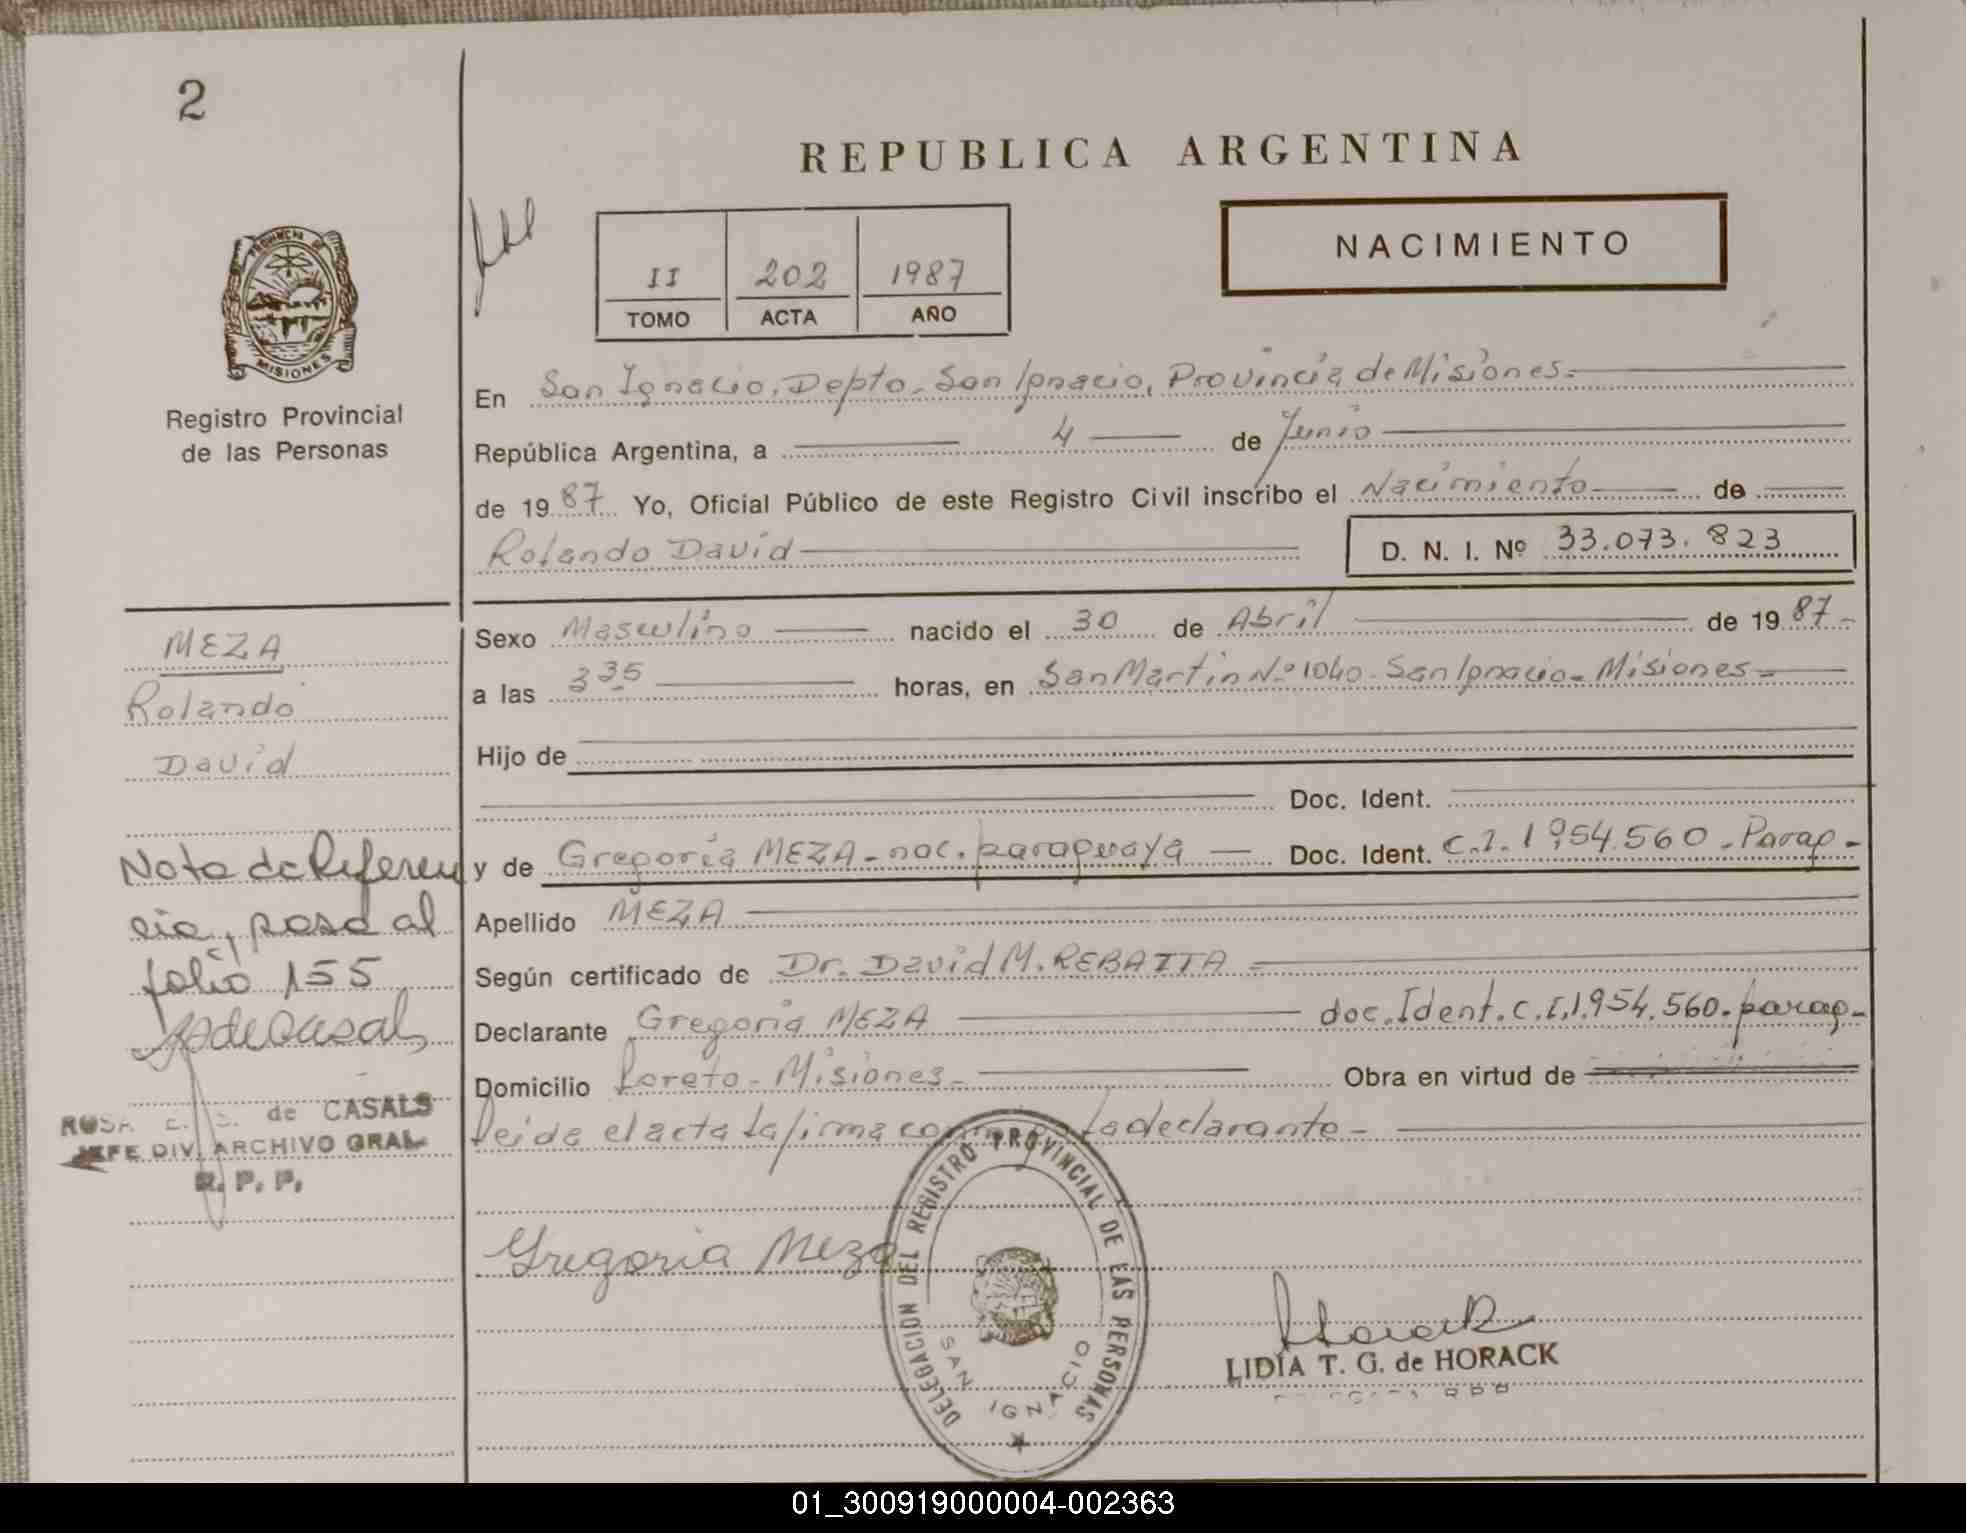 2
REPUBLICA ARGENTINA
NACIMIENTO
II 202 1987
TOMO ACTA AÑO
PROVINCIA DE
MISIONES
Registro Provincial
de las Personas
En San Ignacio, Depto. San Ignacio, Provincia de Misiones.
República Argentina, a 4 de Junio
de 1987 Yo, Oficial Público de este Registro Civil inscribo el Nacimiento de
Rolando David D. N. I. Nº 33.073.823
MEZA
Rolando
David
Sexo Masculino nacido el 30 de Abril de 1987-
a las 3 35 horas, en San Martin Nº 1040. San Ignacio - Misiones-
Hijo de
Doc. Ident.
y de Gregoria MEZA - nac. paraguaya Doc. Ident. C.I. 1954.560 - Parag-
Apellido MEZA
Según certificado de Dr. David M. REBATTA
Declarante Gregoria MEZA doc. Ident. C.I. 1.954.560. parag-
Domicilio Loreto - Misiones - Obra en virtud de
Leida el acta la firma la declarante -
Nota de Referen
cia, pasa al
folio 155
ROSA de CASALS
JEFE DIV. ARCHIVO GRAL.
R. P. P.
Gregoria Meza
DELEGACION DEL REGISTRO PROVINCIAL DE LAS PERSONAS
SAN IGNACIO
Horack
LIDIA T. G. de HORACK
01_300919000004-002363